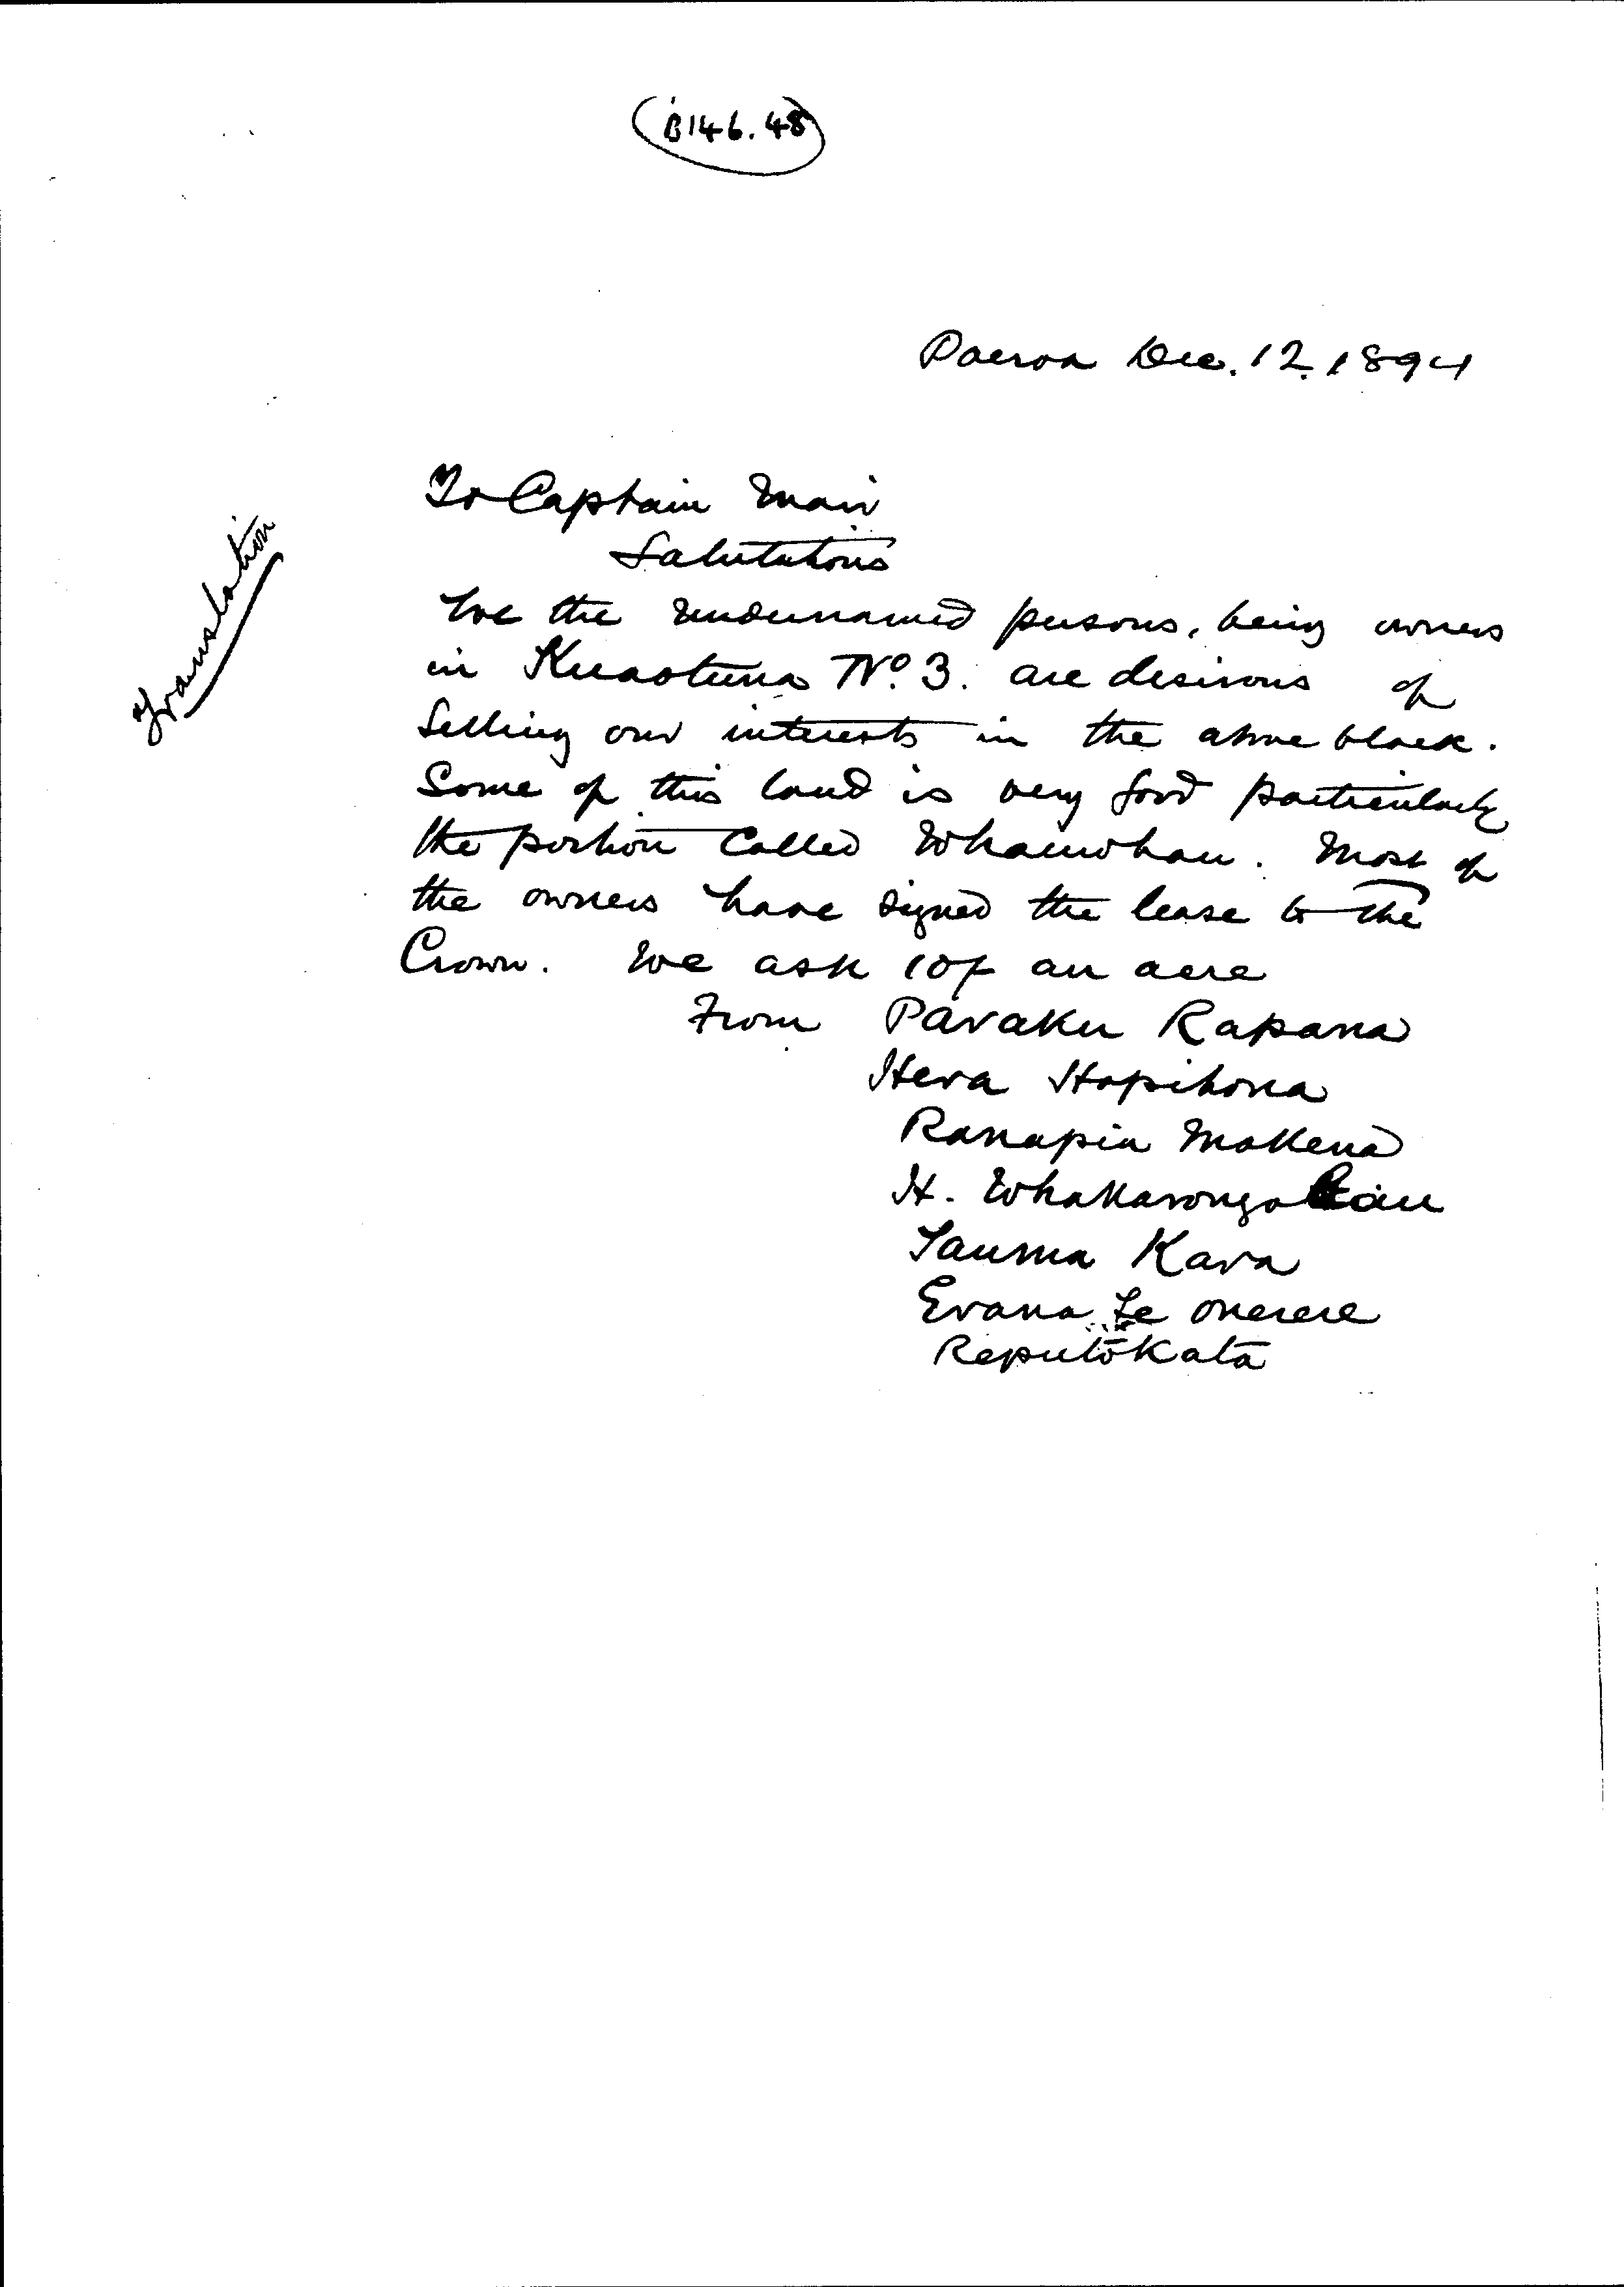 B146.48
Paeroa Dec. 12. 1894
Translation
To Captain Mair
Salutations
We the undernamed persons, being owners
in Kuaotunu No. 3. are desirous of
selling our interests in the above block.
Some of this land is very good particularly
the portion called Whauwhau. Most of
the owners have signed the lease to the
Crown. We ask 10/- an acre
From Paraku Rapana
Hera Hopihona
Ranapia Mokena
H. Whakarongotau
Tauma Kara
Erana Te Onerere
Reputokata